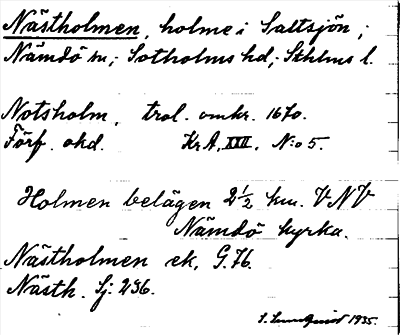 Nästholmen, holme i Saltsjön;
Nämdö sn; Sotholms hd; Sthlms l.
Notsholm, trol. omkr. 1670.
Förf. okd. Kr. A, XXII, N:o 5.
Holmen belägen 2½ km. VNV
Nämdö kyrka.
Nästholmen ek. G. 76.
Nästh. Sj: 236.
S. Lundquist 1935.